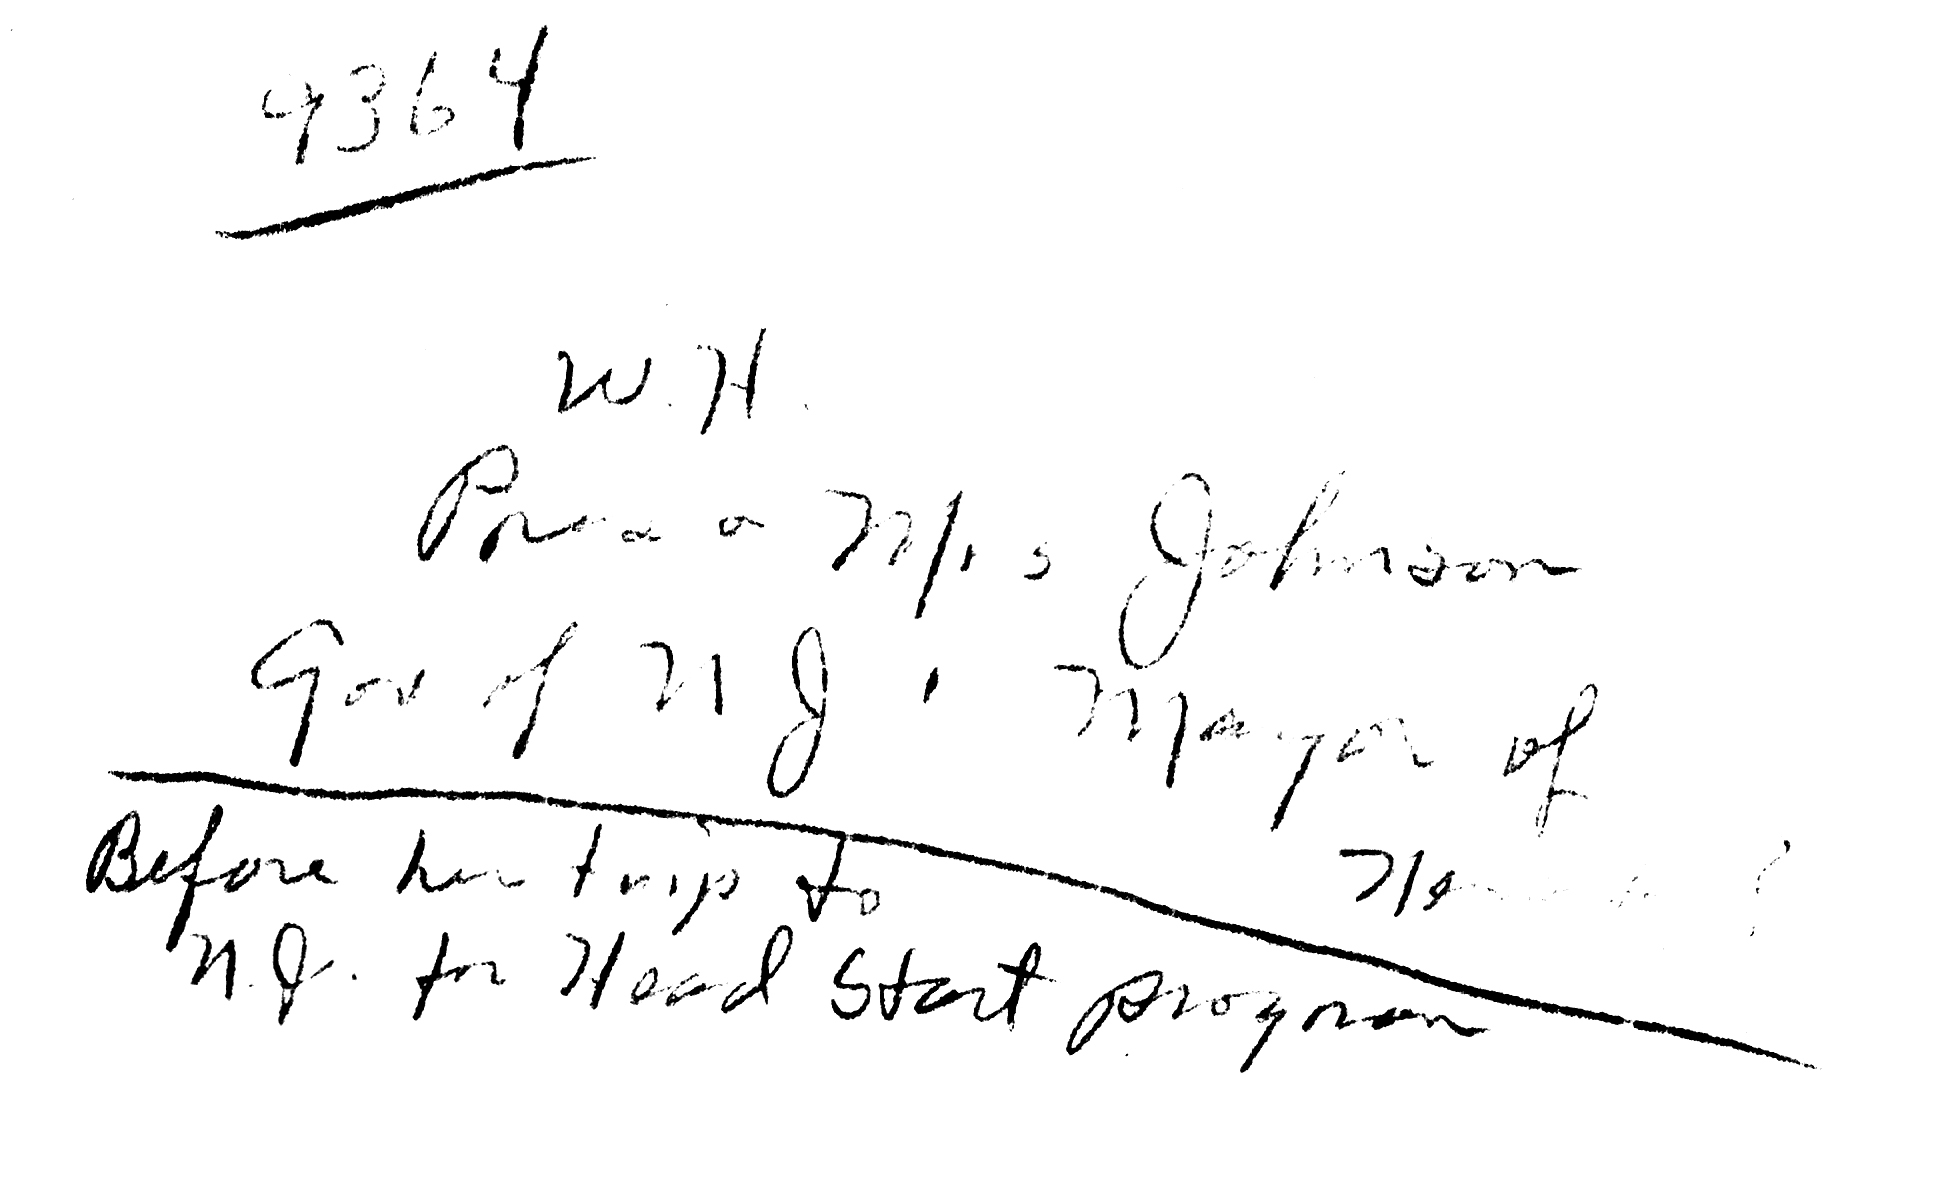 4364
W. H.
Pres a Mrs Johnson
Gov of N J & Mayor of
Before her trip to
N.J. for Head Start program